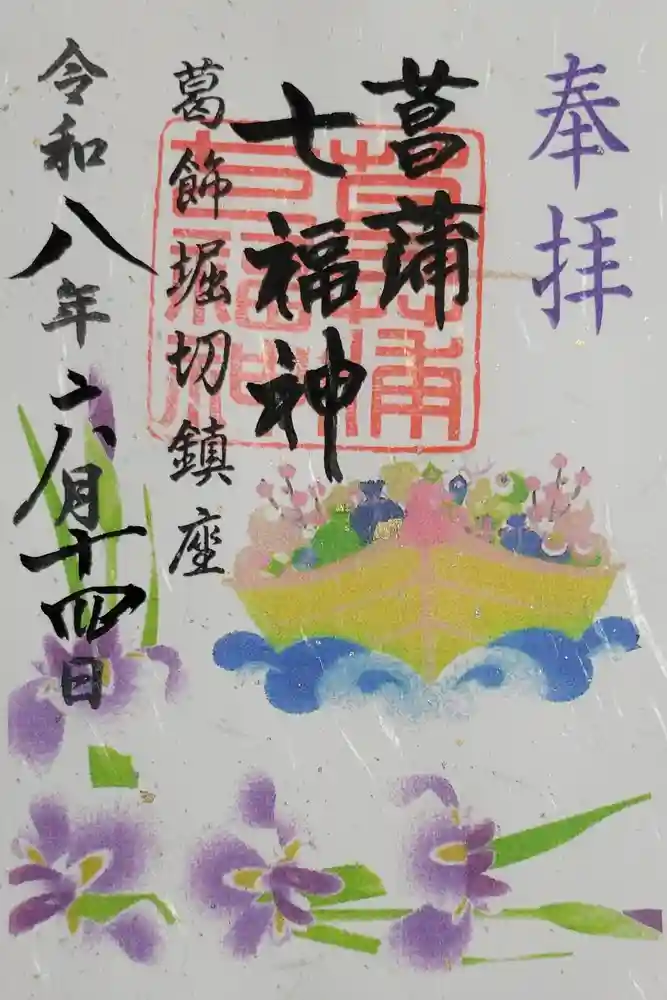 奉拝
菖蒲
七福神
葛飾堀切鎮座
令和八年六月十四日